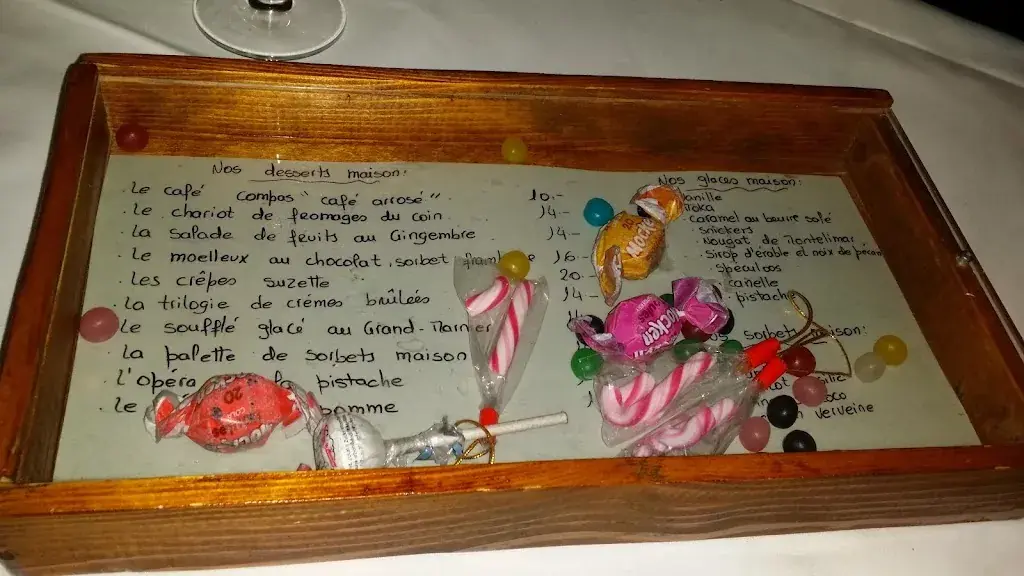 Nos desserts maison:
· Le café compas "café arrosé" 10.-
· Le chariot de fromages du coin 14.-
· La salade de fruits au Gingembre 14.-
· Le moelleux au chocolat, sorbet 16.-
· Les crêpes suzette 20.-
· La trilogie de crèmes brûlées 14.-
· Le soufflé glacé au Grand-Marnier
· La palette de sorbets maison
· L'opéra pistache
· Le pomme
Nos glaces maison:
Vanille
Toka
· Caramel au beurre salé
· Snickers
· Nougat de Montelimar
· Sirop d'érable et noix de pécan
· Speculoos
· canelle
· pistache
sorbets maison:
coco
verveine
Mocken
20